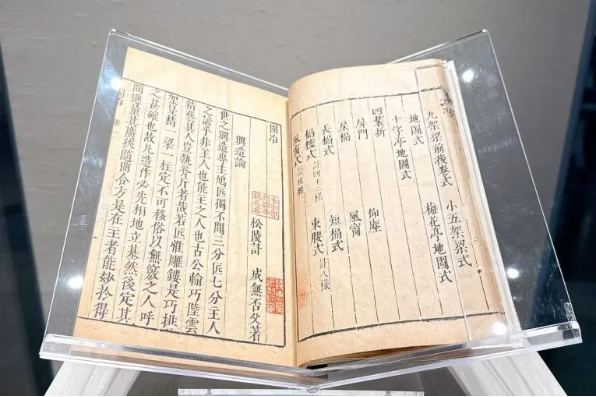 九架梁前後卷式 小五架梁式
地圖式
十字亭地圖式 梅花亭地圖式
四裝折
屏門 仰塵
槅 風窗
長槅式 短槅式
槅櫺式 束腰式 計八樣
風窗式
園冶
興造論
松陵計 成無否父著
世之興造專主鳩匠獨不聞三分匠七分主人
之諺乎非主人也能主之人也古公輸巧陸雲
精藝其人豈執斧斤者哉若匠惟雕鏤是巧排
架是精一梁一柱定不可移俗以無竅之人呼
之甚確也故凡造作必先相地立基然後定其
間進量其廣狹隨曲合方是在主者能妙於得
園冶